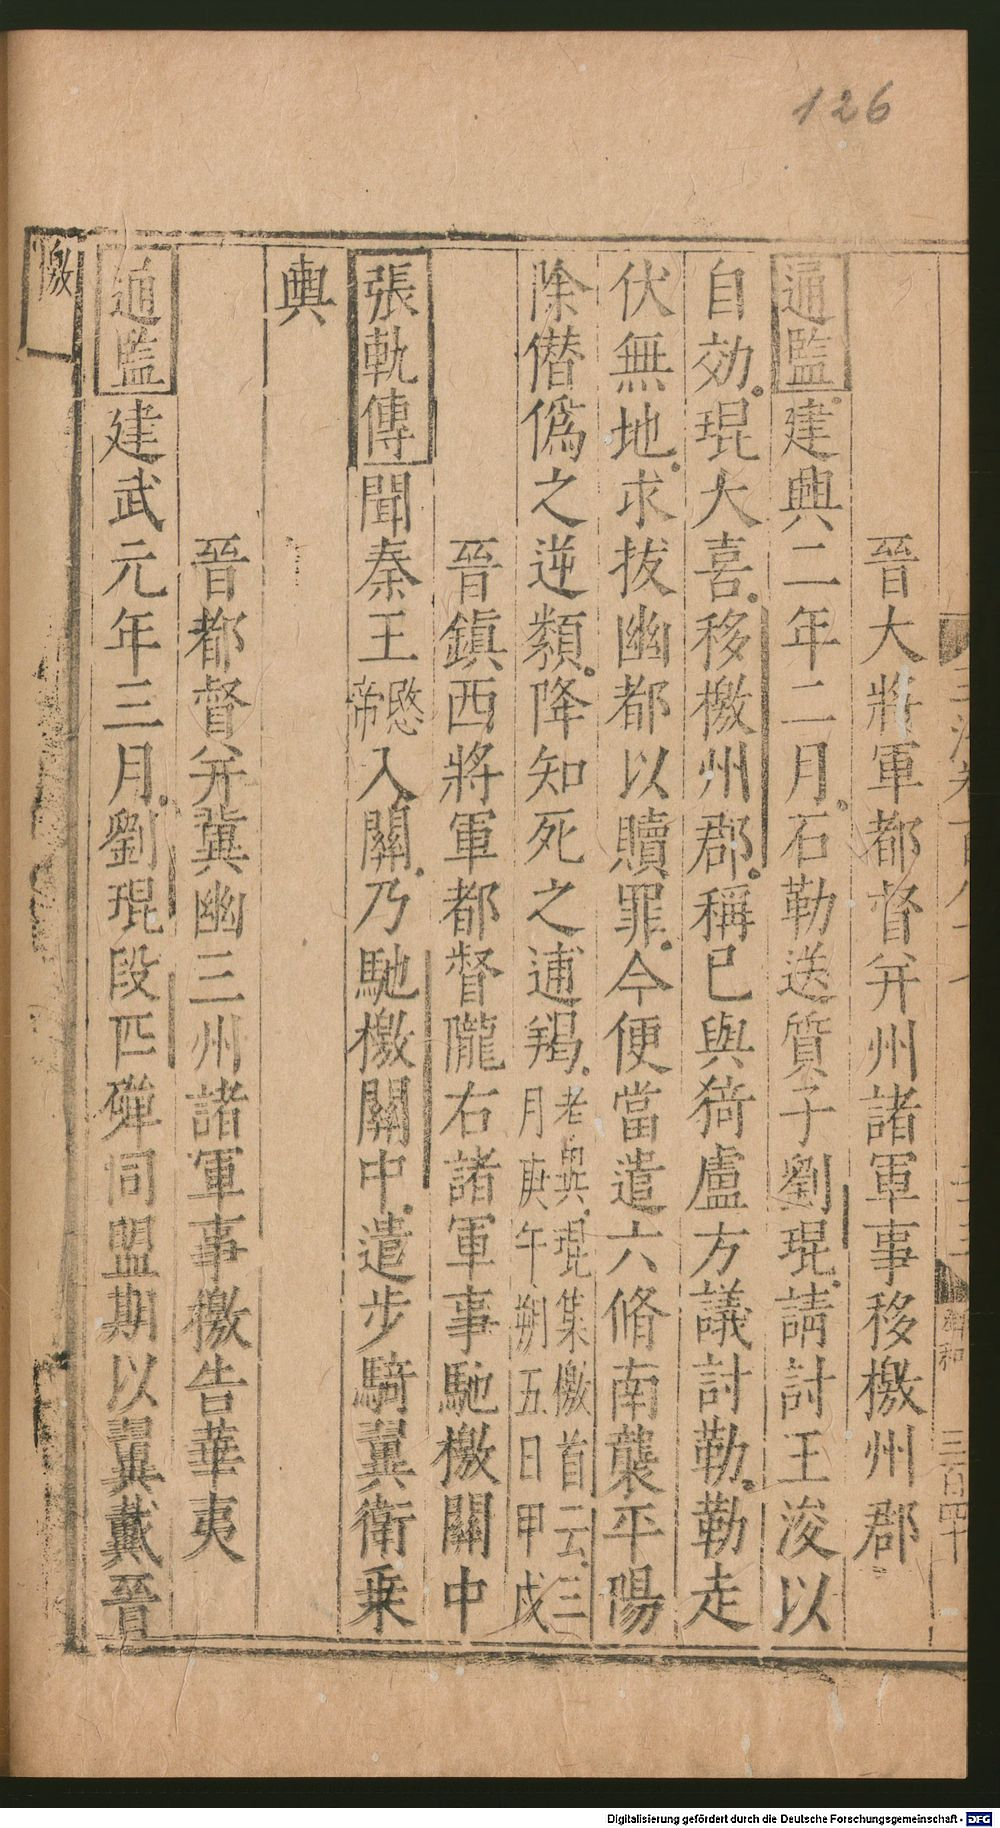 126
晉大將軍都督并州諸軍事移檄州郡
通監建興二年二月石勒送質子劉琨請討王浚以
自効琨大喜移檄州郡稱已與猗盧方議討勒勒走
伏無地求拔幽都以贖罪今便當遣六脩南襲平陽
除僭僞之逆類降知死之逋羯老異琨集檄首云三
月庚午朔五日甲戌
晉鎮西將軍都督隴右諸軍事馳檄關中
張軌傳聞秦王愍
帝入關乃馳檄關中遣步騎翼衛乗
輿
晉都督并冀幽三州諸軍事檄告華夷
通監建武元年三月劉琨段匹磾同盟期以翼戴晉
檄
Digitalisierung gefördert durch die Deutsche Forschungsgemeinschaft - DFG